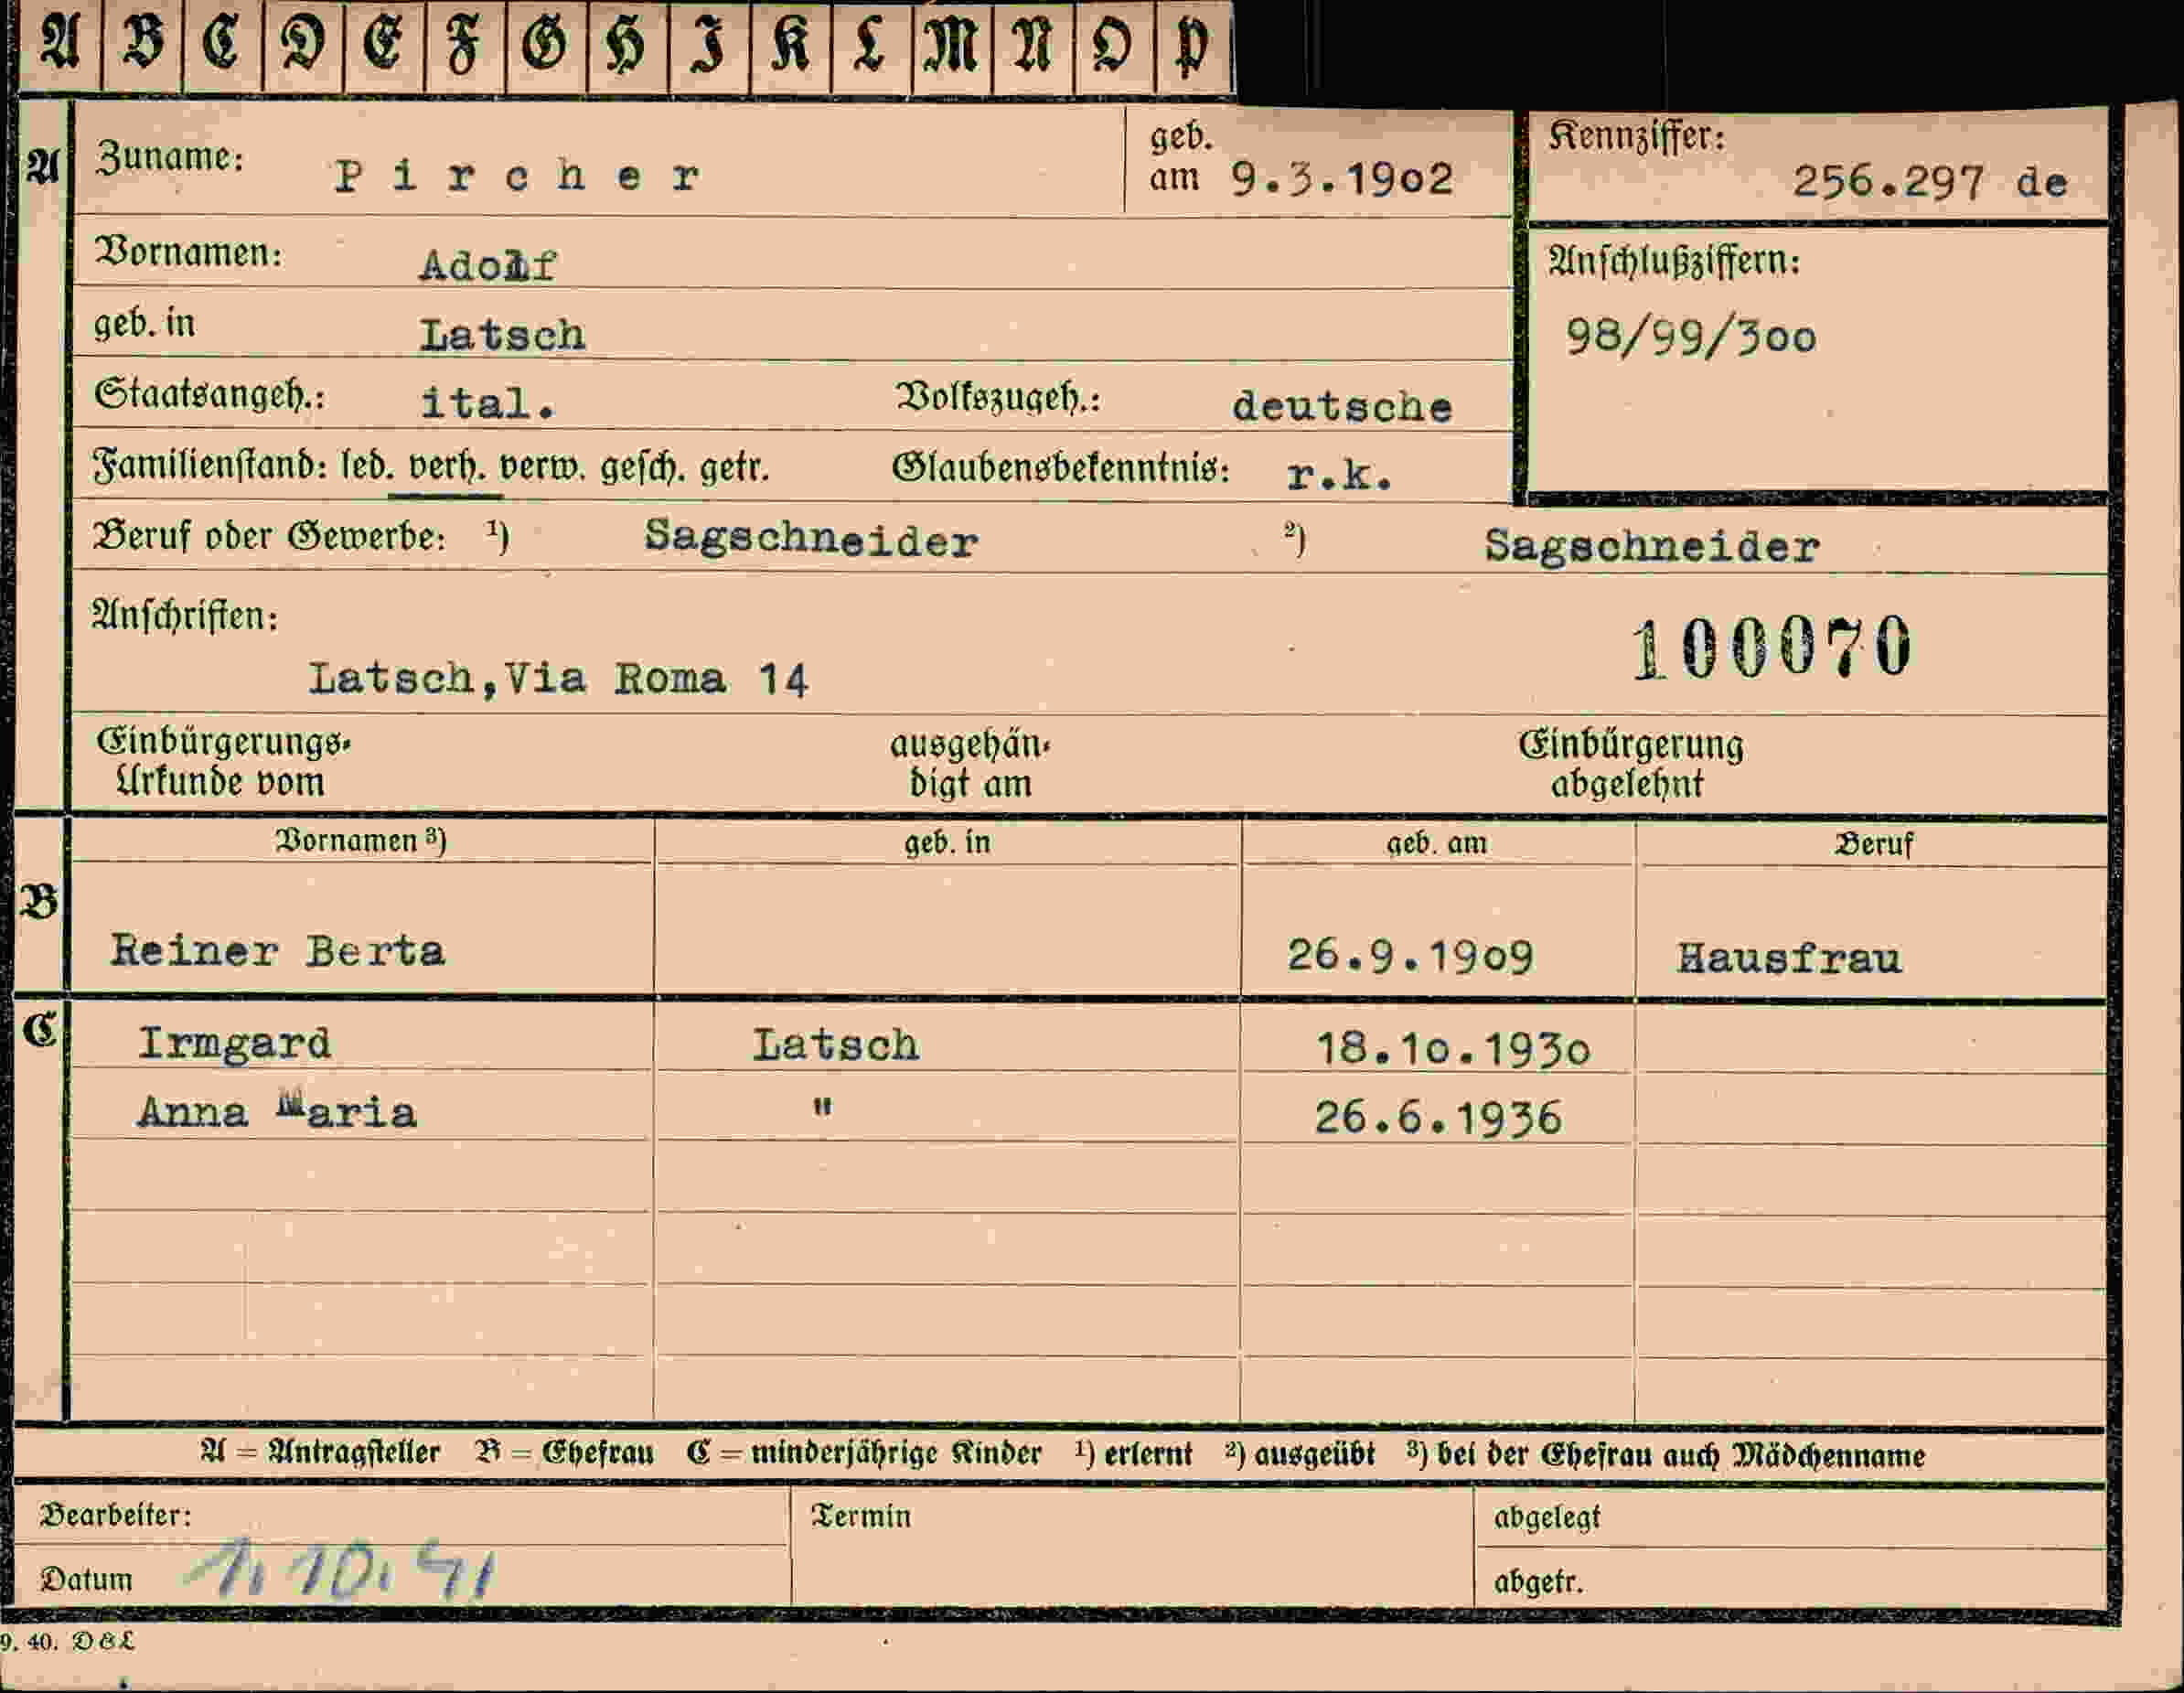 A B C D E F G H I K L M N O P
A Zuname: Pircher geb. am 9.3.1902 Kennziffer: 256.297 de
Vornamen: Adolf Anschlußziffern:
geb. in Latsch 98/99/300
Staatsangeh.: ital. Volkszugeh.: deutsche
Familienstand: led. verh. verw. gesch. getr. Glaubensbekenntnis: r.k.
Beruf oder Gewerbe: ¹) Sagschneider ²) Sagschneider
Anschriften: 100070
Latsch,Via Roma 14
Einbürgerungs- ausgehän- Einbürgerung
Urkunde vom digt am abgelehnt
Vornamen ³) geb. in geb. am Beruf
B
Reiner Berta 26.9.1909 Hausfrau
C Irmgard Latsch 18.10.1930
Anna Maria " 26.6.1936
A = Antragsteller B = Ehefrau C = minderjährige Kinder ¹) erlernt ²) ausgeübt ³) bei der Ehefrau auch Mädchenname
Bearbeiter: Termin abgelegt
Datum 1.10.41 abgetr.
9. 40. D & L